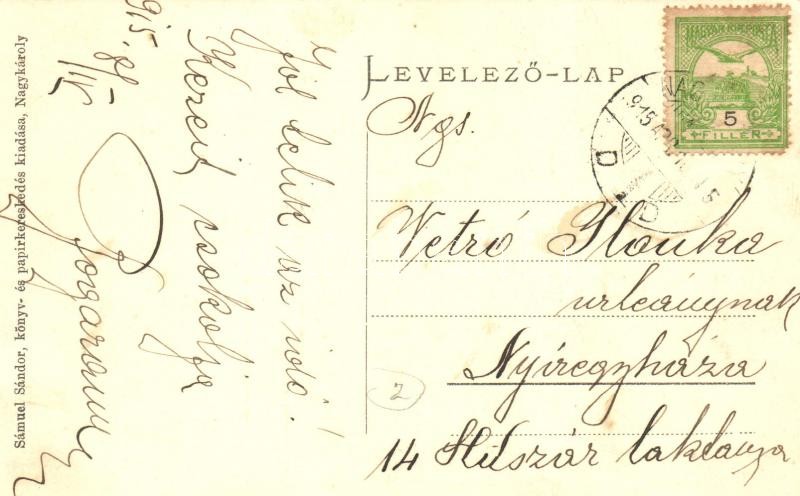 Sámuel Sándor, könyv- és papirkereskedés kiadása, Nagykároly
915
Jól telik az idő!
Kezeid csokolja
LEVELEZŐ-LAP
Ngs.
Vetró Ilonka
urleánynak
Nyíregyháza
14 Huszár laktanya
MAGYAR KIR. POSTA
5
FILLÉR
NAG
915
D
D
2